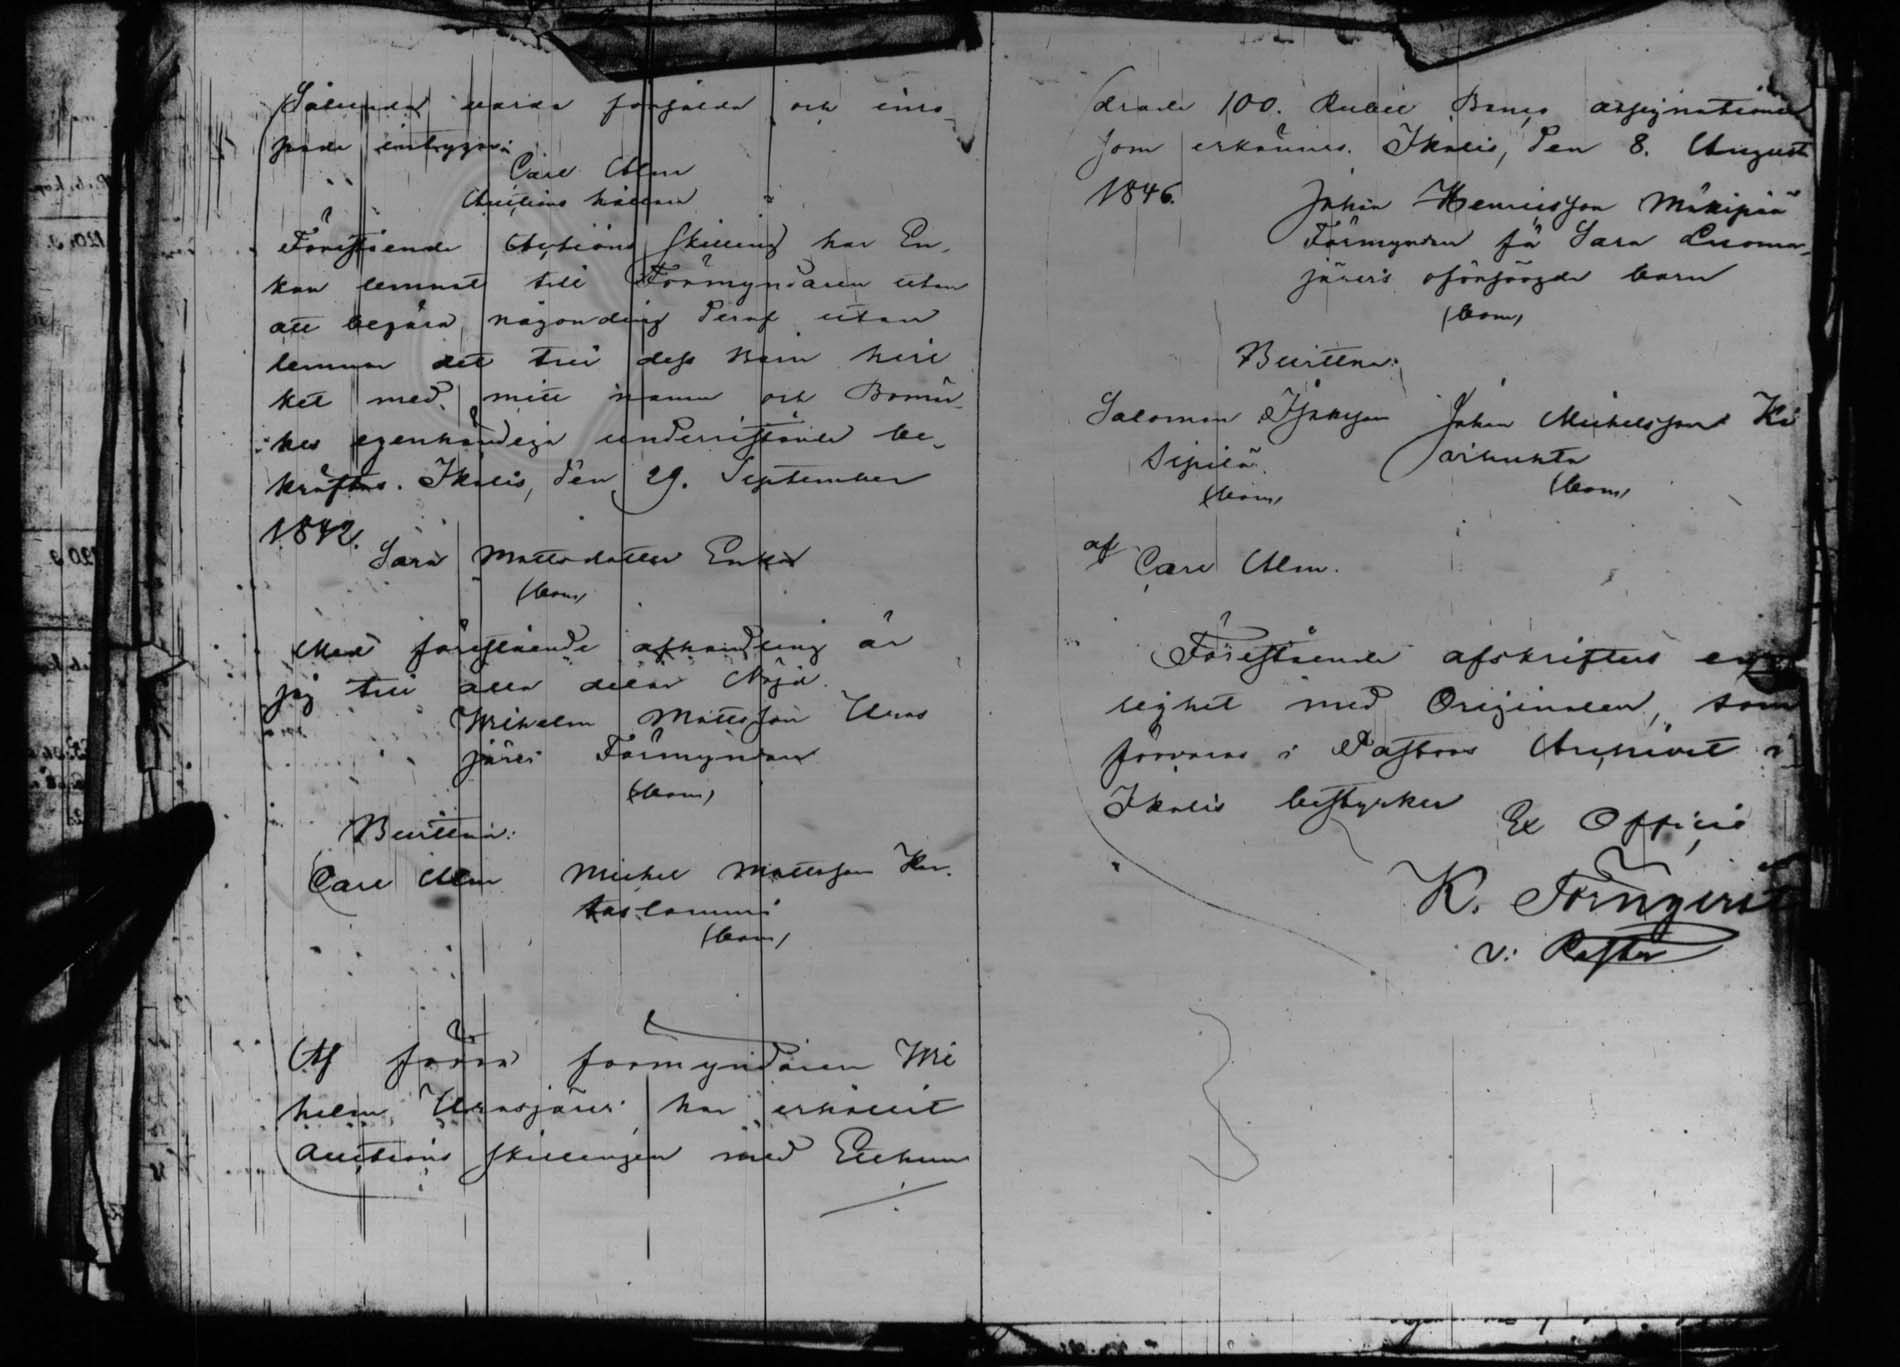 Sålunda varda försålda och inro-
pade intygar:
Carl Alm
Auctions hållare
Förestående Auctions skilling har En-
kan lemnat till Förmyndaren utan
att begära någonding deraf utan
lemnar det till dess barn hvil
ket med mitt namn och Bomär-
kes egenhändiga underrittande be-
kräftas. Ikalis, den 29. September
1842.
Sara Mattsdotter Enka
(bom)
Med förestående afhandling är
jag till alla delar Nöjd.
Wilhelm Mattsson Uras
järvi Förmyndare
(bom)
Bevittna:
Carl Alm Michel Mattsson Kar-
taslammi
(bom)
Af förra förmyndaren Wil
helm Urasjärvi har erhållit
Auctions skillingen med Etthun
drade 100. Rubel Banco assignationer
som erkännes. Ikalis, den 8. August
1846.
Johan Henricsson Mäkipää
Förmyndare få Sara Luoma-
järvis oförsörgde barn
(bom)
Bevittna:
Salomon Isaksson Johan Michelsson Ki
Sipilä
(bom) (bom)
af Carl Alm.
Förestående afskrifters
lighet med Originalen, som
förvaras i Pastors Archivet i
Ikalis bestyrker
Ex Officio
K. Törnqvist
v: Pastor